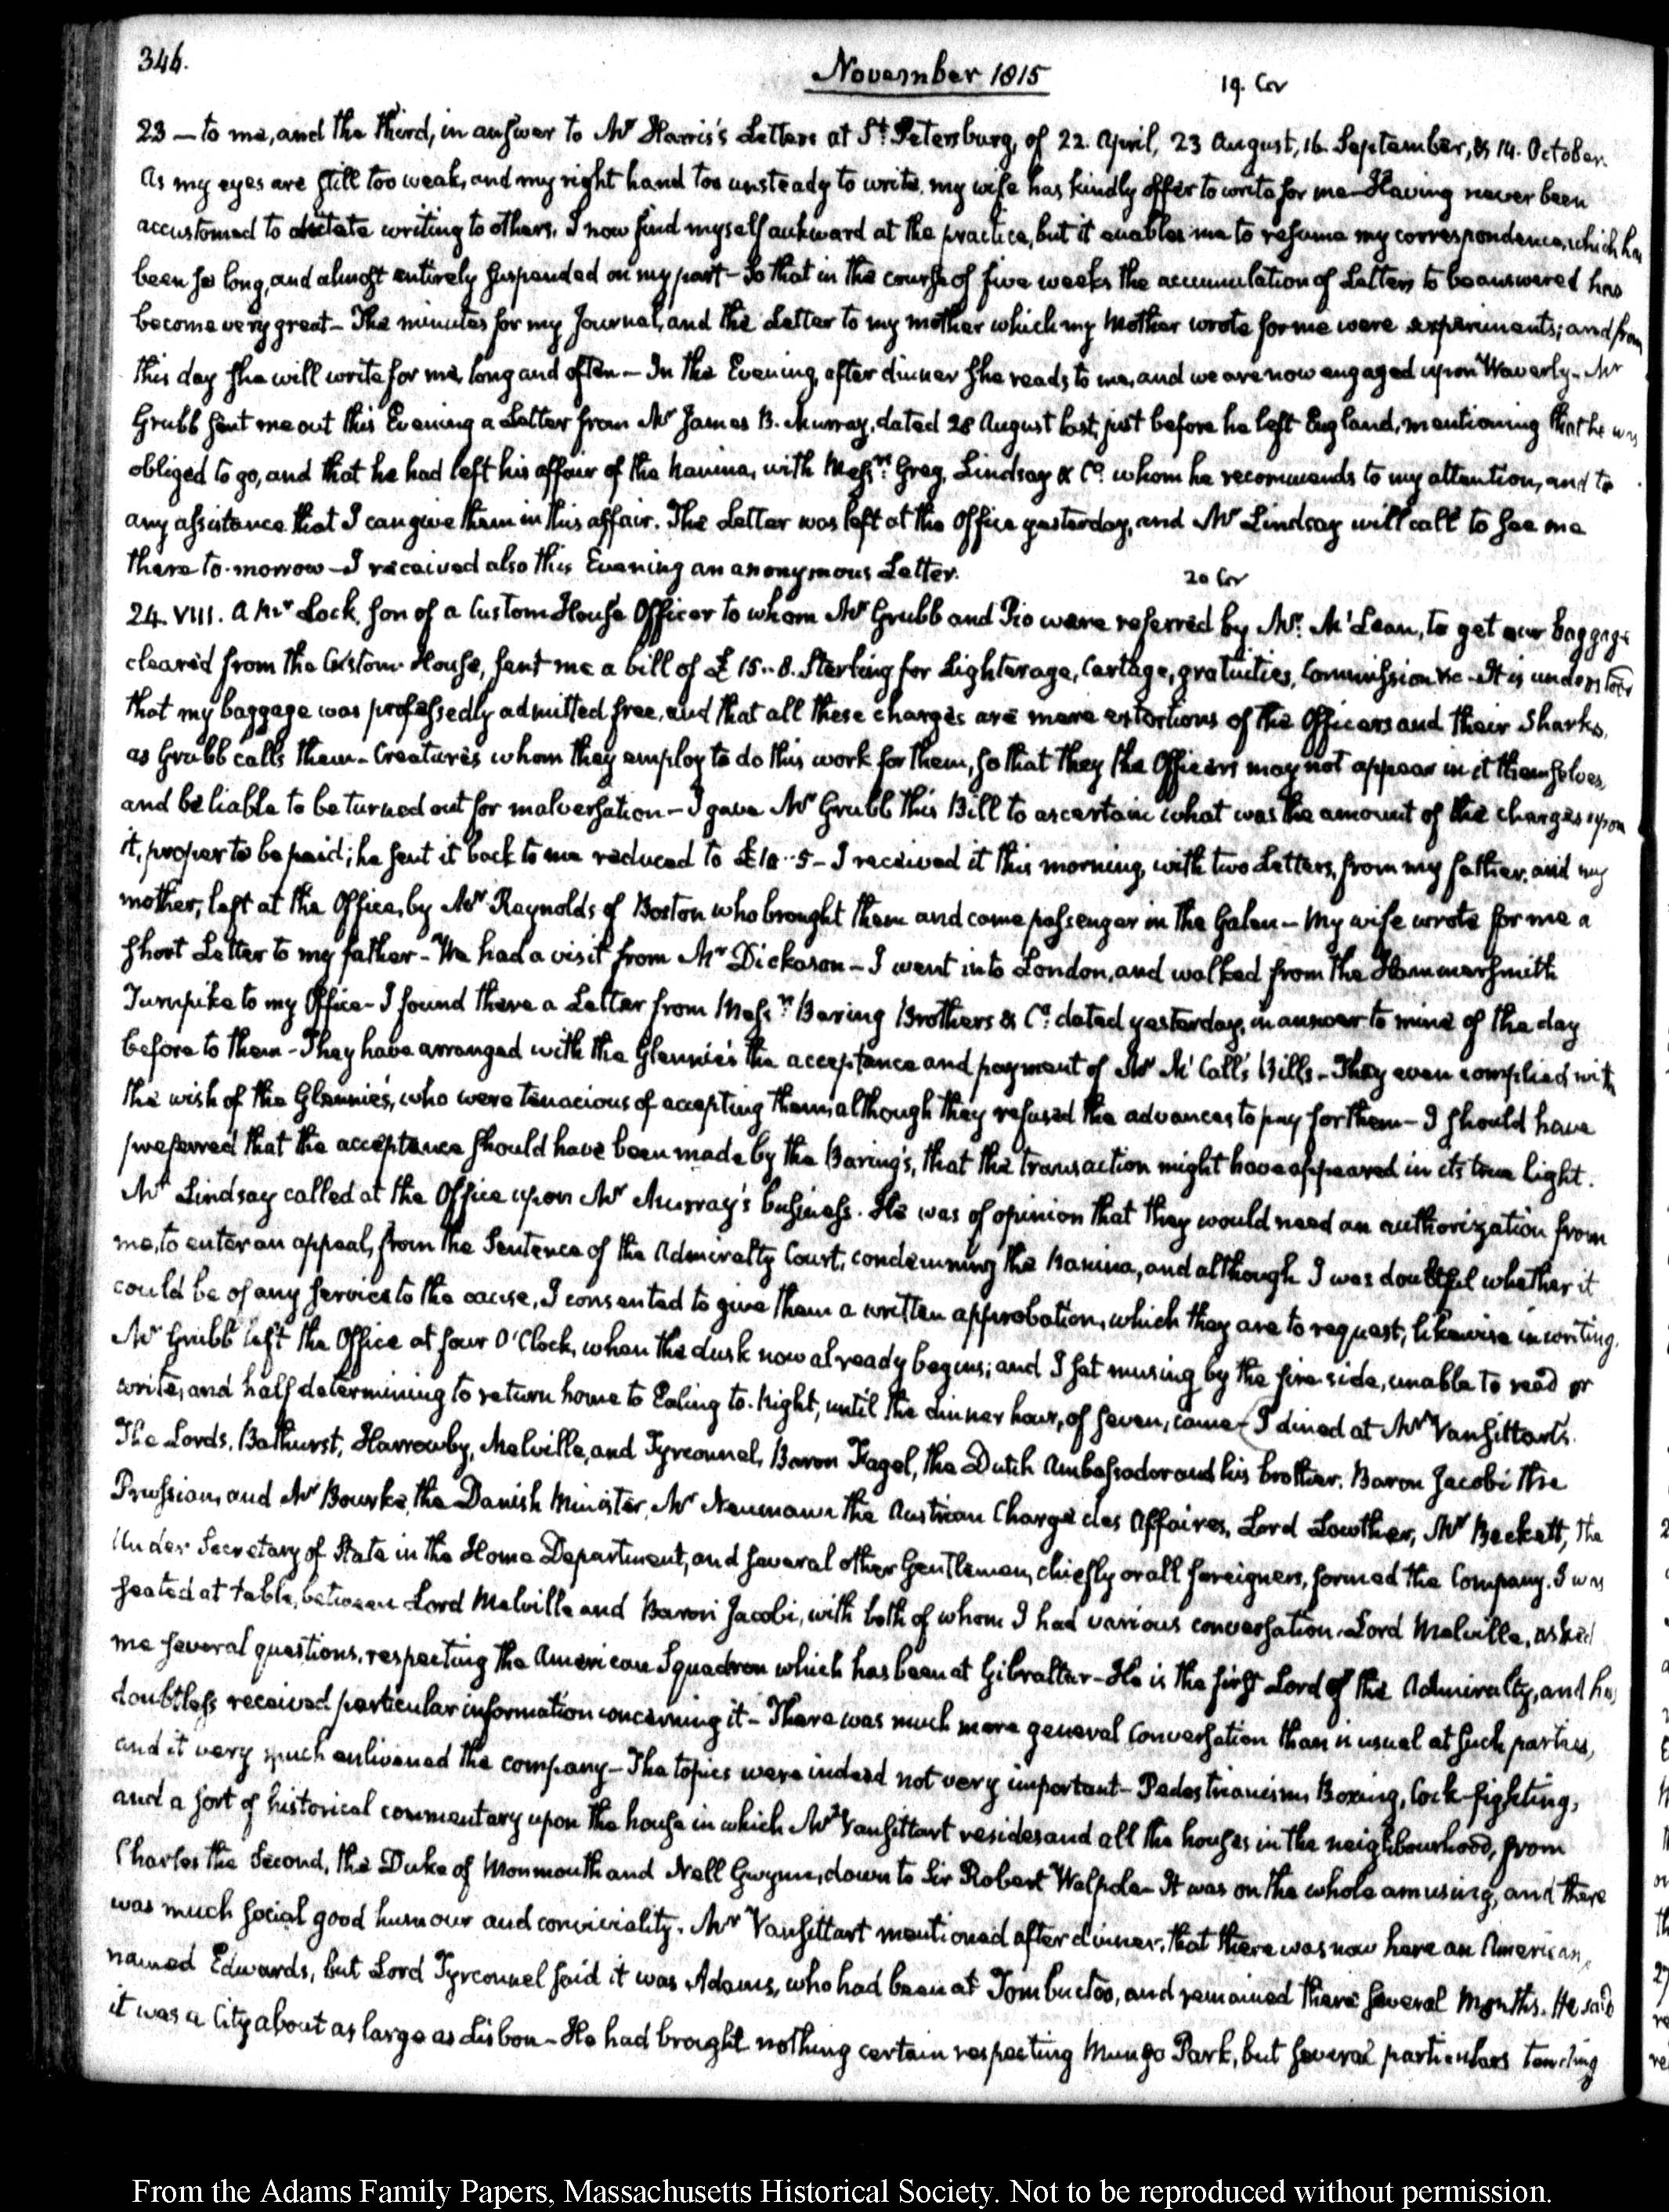 346.
November 1815
19. Cor
23 — to me, and the third, in answer to Mr Harris's Letters at St. Petersburg, of 22. April, 23 August, 16. September, & 14. October.
As my eyes are still too weak, and my right hand too unsteady to write, my wife has kindly offer to write for me — Having never been
accustomed to dictate writing to others, I now find myself aukward at the practice, but it enables me to resume my correspondence, which has
been so long, and almost entirely suspended on my part — So that in the course of five weeks the accumulation of Letters to be answered has
become very great — The minutes for my Journal, and the Letter to my mother which my Mother wrote for me were experiments; and from
this day she will write for me, long and often — In the Evening, after dinner she reads to me, and we are now engaged upon Waverly — Mr
Grubb sent me out this Evening a Letter from Mr James B. Murray, dated 28 August last, just before he left England, mentioning that he was
obliged to go, and that he had left his affair of the Nanina, with Messrs. Greg, Lindsay & Co. whom he recommends to my attention, and to
any assistance that I can give them in this affair. The Letter was left at the Office yesterday, and Mr Lindsay will call to see me
there to-morrow — I received also this Evening an anonymous Letter.
20 Cor
24. VIII. A Mr Lock, son of a Custom House Officer to whom Mr Grubb and Pio were referred by Mr. McLean, to get our baggage
cleared from the Custom House, sent me a bill of £15..8. Sterling for Lighterage, Cartage, gratuities, Commission &c — It is understood
that my baggage was professedly admitted free, and that all these charges are mere extortions of the Officers and their Sharks,
as Grubb calls them — Creatures whom they employ to do this work for them, so that they the Officers may not appear in it themselves,
and be liable to be turned out for malversation — I gave Mr Grubb this Bill to ascertain what was the amount of the charges upon
it, proper to be paid; he sent it back to me reduced to £10..5 — I received it this morning, with two Letters, from my father, and my
mother, left at the Office, by Mr Reynolds of Boston who brought them and came passenger in the Galen — My wife wrote for me a
short Letter to my father — We had a visit from Mr Dickason — I went into London, and walked from the Hammersmith
Turnpike to my Office — I found there a Letter from Messrs Baring Brothers & Co. dated yesterday, in answer to mine of the day
before to them — They have arranged with the Glennie's the acceptance and payment of Mr McCall's Bills — They even complied with
the wish of the Glennie's, who were tenacious of accepting them, although they refused the advances to pay for them — I should have
preferred that the acceptance should have been made by the Baring's, that the transaction might have appeared in its true light.
Mr Lindsay called at the Office upon Mr Murray's business. He was of opinion that they would need an authorization from
me, to enter an appeal, from the Sentence of the Admiralty Court, condemning the Nanina, and although I was doubtful whether it
could be of any service to the cause, I consented to give them a written approbation, which they are to request, likewise in writing.
Mr Grubb left the Office at four O'Clock, when the dusk now already begins; and I sat musing by the fire side, unable to read or
write, and half determining to return home to Ealing to-night, until the dinner hour, of seven, came — I dined at Mr Vansittart's.
The Lords, Bathurst, Harrowby, Melville, and Tyrconnel, Baron Fagel, the Dutch Ambassador and his brother, Baron Jacobi the
Prussian, and Mr Bourke, the Danish Minister, Mr Neumann the Austrian Chargé des Affaires, Lord Lowther, Mr Beckett, the
Under Secretary of State in the Home Department, and several other Gentlemen, chiefly or all foreigners, formed the Company. I was
seated at table, between Lord Melville and Baron Jacobi, with both of whom I had various conversation. Lord Melville, asked
me several questions, respecting the American Squadron which has been at Gibraltar — He is the first Lord of the Admiralty, and has
doubtless received particular information concerning it — There was much more general Conversation than is usual at such parties,
and it very much enlivened the company — The topics were indeed not very important — Pedestrianism, Boxing, Cock-fighting,
and a sort of historical commentary upon the house in which Mr Vansittart resides and all the houses in the neighbourhood, from
Charles the Second, the Duke of Monmouth and Nell Gwynn, down to Sir Robert Walpole — It was on the whole amusing, and there
was much social good humour and conviviality. Mr Vansittart mentioned after dinner, that there was now here an American,
named Edwards, but Lord Tyrconnel said it was Adams, who had been at Tombuctoo, and remained there several Months. He said
it was a City about as large as Lisbon — He had brought nothing certain respecting Mungo Park, but several particulars tending
From the Adams Family Papers, Massachusetts Historical Society. Not to be reproduced without permission.